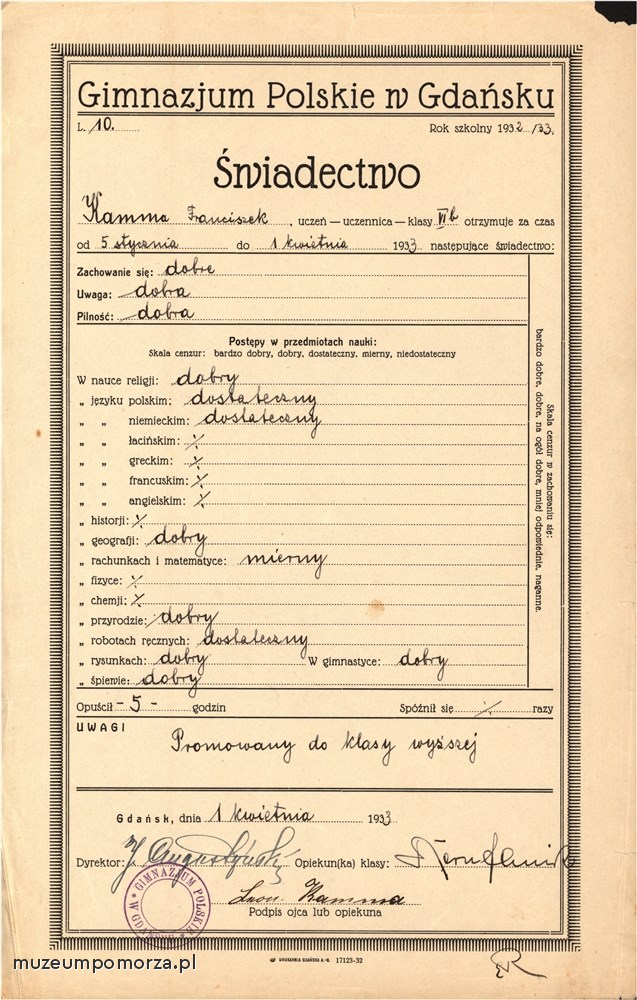 Gimnazjum Polskie w Gdańsku
L. 10. Rok szkolny 1932/33.
Świadectwo
Kamma Franciszek, uczeń — uczennica — klasy VIb otrzymuje za czas
od 5 stycznia do 1 kwietnia 1933 następujące świadectwo:
Zachowanie się: dobre
Uwaga: dobra
Pilność: dobra
Postępy w przedmiotach nauki:
Skala cenzur: bardzo dobry, dobry, dostateczny, mierny, niedostateczny
W nauce religji: dobry
„ języku polskim: dostateczny
„ „ niemieckim: dostateczny
„ „ łacińskim: ./.
„ „ greckim: ./.
„ „ francuskim: ./.
„ „ angielskim: ./.
„ historji: ./.
„ geografji: dobry
„ rachunkach i matematyce: mierny
„ fizyce: ./.
„ chemji: ./.
„ przyrodzie: dobry
„ robotach ręcznych: dostateczny
„ rysunkach: dobry W gimnastyce: dobry
„ śpiewie: dobry
Skala cenzur w zachowaniu się:
bardzo dobre, dobre, na ogół dobre, mniej odpowiednie, naganne.
Opuścił - 5 - godzin Spóźnił się ./. razy
UWAGI
Promowany do klasy wyższej
Gdańsk, dnia 1 kwietnia 1933
Dyrektor: J. Augustyński Opiekun(ka) klasy:
Leon Kamma
Podpis ojca lub opiekuna
GIMNAZJUM POLSKIE W GDAŃSKU
DRUKARNIA GDAŃSKA A.-G. 17123-32
muzeumpomorza.pl